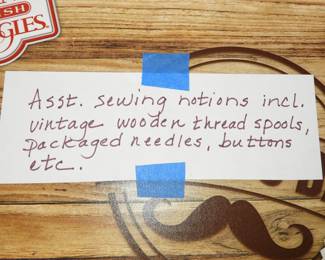 ISH
GLES
Asst. sewing notions incl.
vintage wooden thread spools,
packaged needles, buttons
etc.